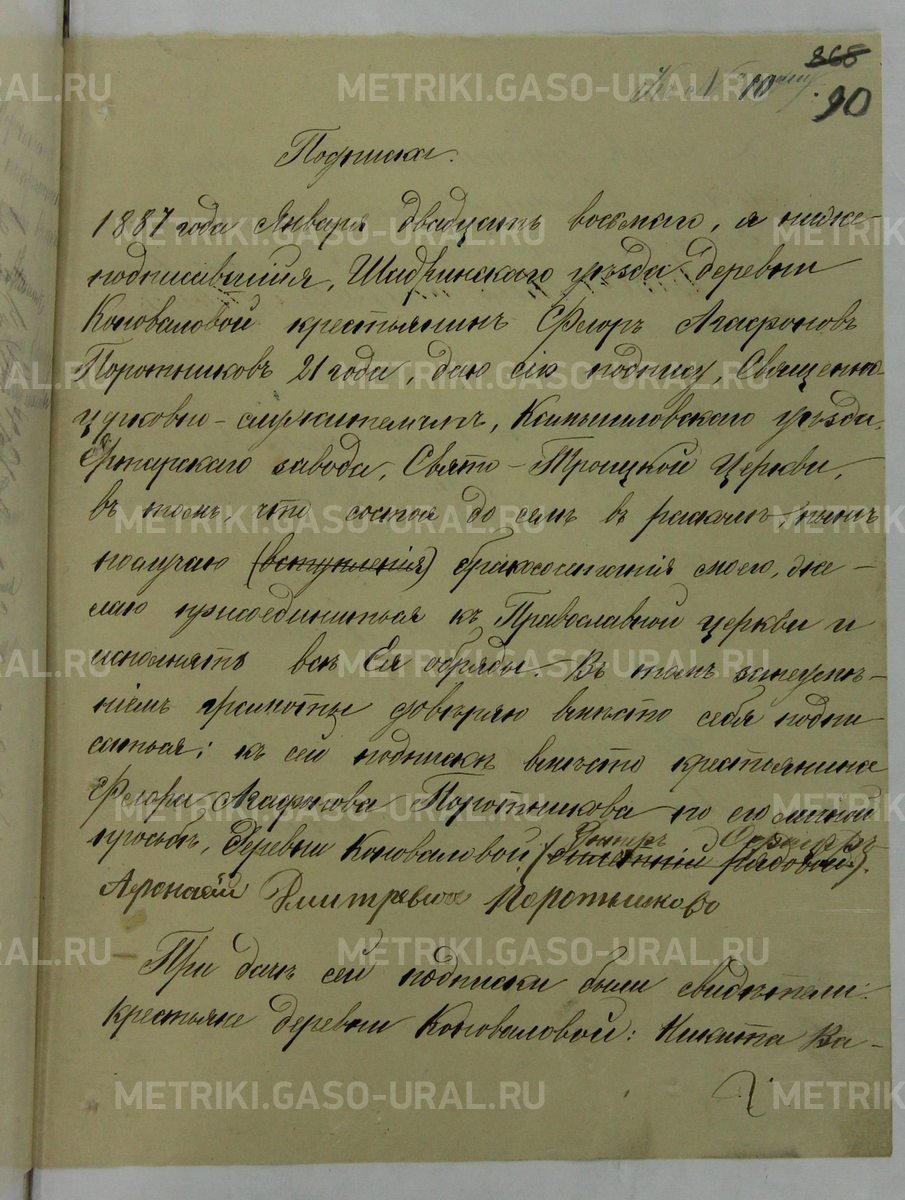 868
90
Къ № 10
Подписка.
1887 года Января двадцать восьмаго, я ниже-
подписавшійся, Шадринскаго уѣзда деревни
Коноваловой крестьянинъ Флоръ Агафоновъ
Поротниковъ 21 года, даю сію подпису, Священно-
церковно-служителямъ, Камышловскаго уѣзда,
Ертарскаго завода, Свято-Троицкой Церкви,
въ томъ, что состоя до семъ въ расколѣ, нынѣ
послучаю (вступленія) бракосочетанія моего, же-
лаю присоединиться къ Православной церкви и
исполнять всѣ Ея обряды. Въ томъ занеумѣ-
ніемъ грамоты довѣряю вмѣсто себя подпи
саться; къ сей подпискѣ вмѣсто крестьянина
Флора Агафонова Поротникова по его личной
просьбѣ, деревни Коноваловой, Унтеръ Офицеръ
(рядовой).
Дмитревичь Поротниковъ
При дачѣ сей подписки были свидѣтели:
крестьяне деревни Коноваловой: Никита Ва-
METRIKI.GASO-URAL.RU